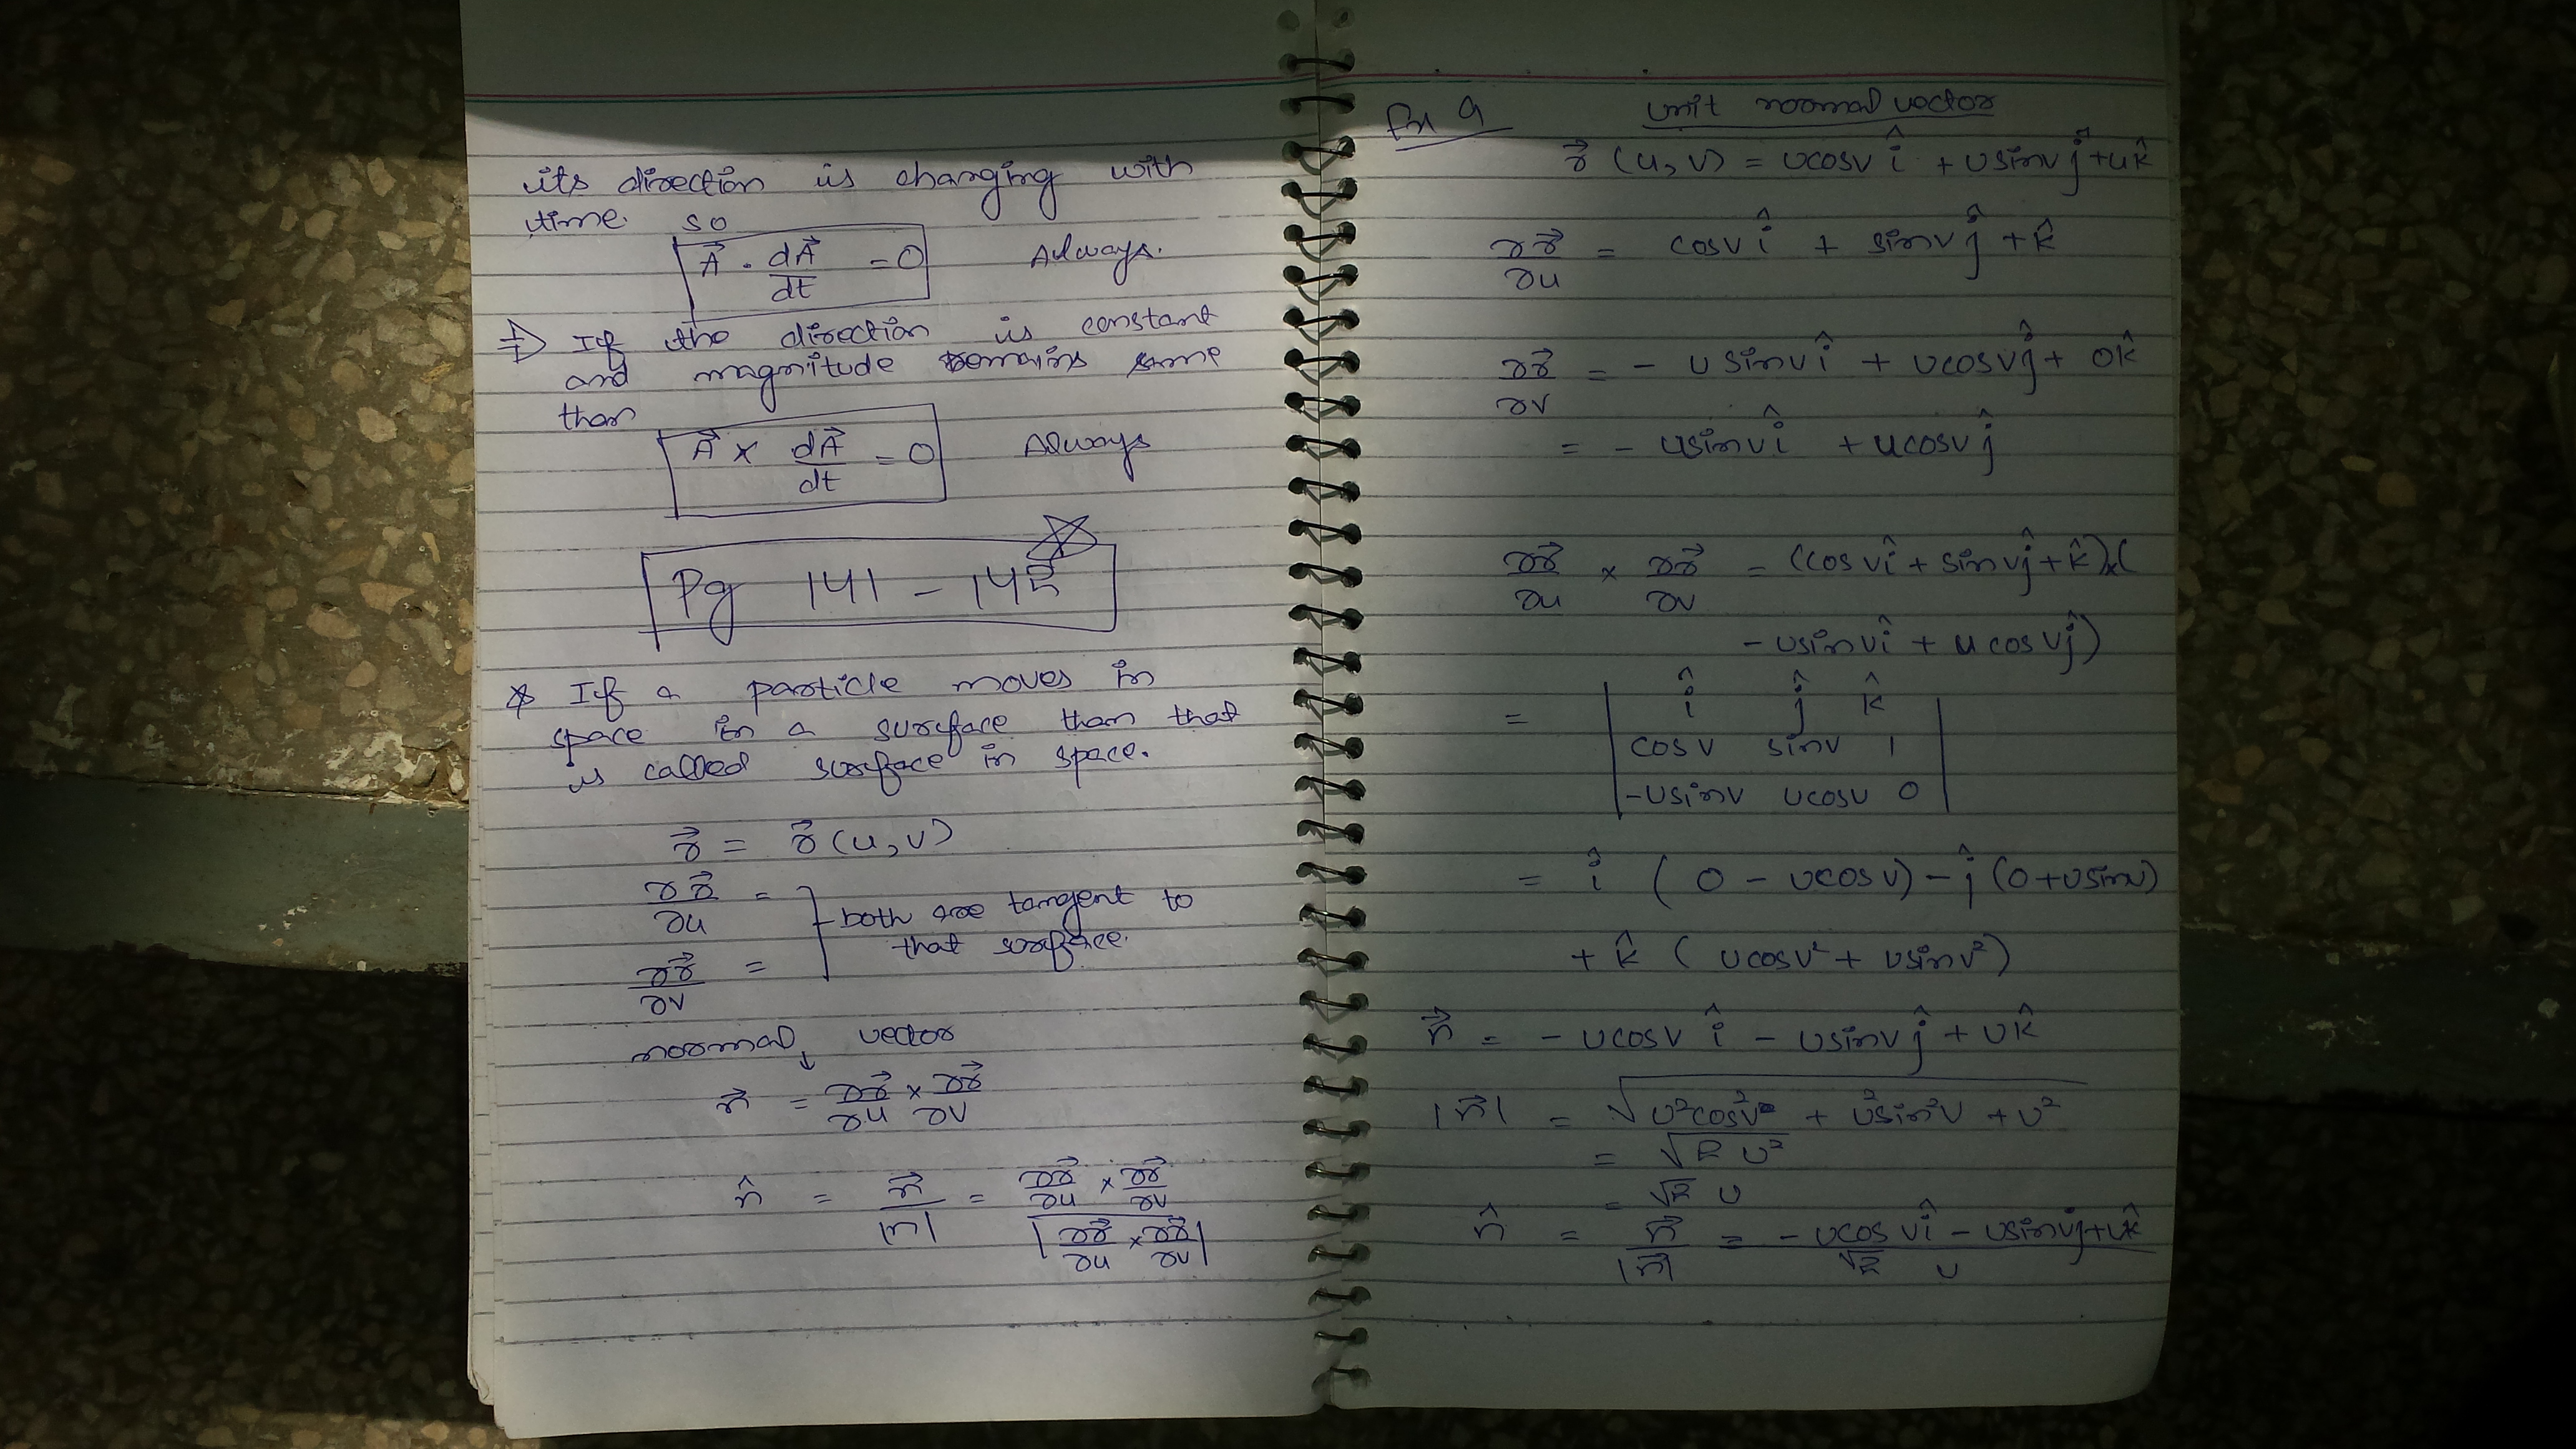 its direction is changing with
time. so
A⃗ · dA⃗/dt = 0 Always.
⇒ If the direction is constant
and magnitude remains same
than
A⃗ × dA⃗/dt = 0 Always
Pg 141 - 142
* If a particle moves in
space in a surface than that
is called surface in space.
r⃗ = r⃗ (u, v)
∂r⃗/∂u =
both are tangent to
that surface.
∂r⃗/∂v =
normal vector
n⃗ = ∂r⃗/∂u × ∂r⃗/∂v
n̂ = n⃗/|n| = (∂r⃗/∂u × ∂r⃗/∂v) / |∂r⃗/∂u × ∂r⃗/∂v|
Ex 9 unit normal vector
r⃗ (u, v) = ucosv î + usinv ĵ + uk̂
∂r⃗/∂u = cosv î + sinv ĵ + k̂
∂r⃗/∂v = - usinv î + ucosv ĵ + 0k̂
= - usinv î + ucosv ĵ
∂r⃗/∂u × ∂r⃗/∂v = (cosv î + sinv ĵ + k̂) × (
- usinv î + ucosv ĵ)
= | î ĵ k̂ |
| cosv sinv 1 |
| -usinv ucosv 0 |
= î (0 - ucosv) - ĵ (0 + usinv)
+ k̂ (ucosv² + usinv²)
n⃗ = - ucosv î - usinv ĵ + uk̂
|n⃗| = √(u²cos²v + u²sin²v + u²)
= √(2 u²)
= √2 u
n̂ = n⃗/|n⃗| = (- ucosv î - usinvĵ + uk̂) / (√2 u)